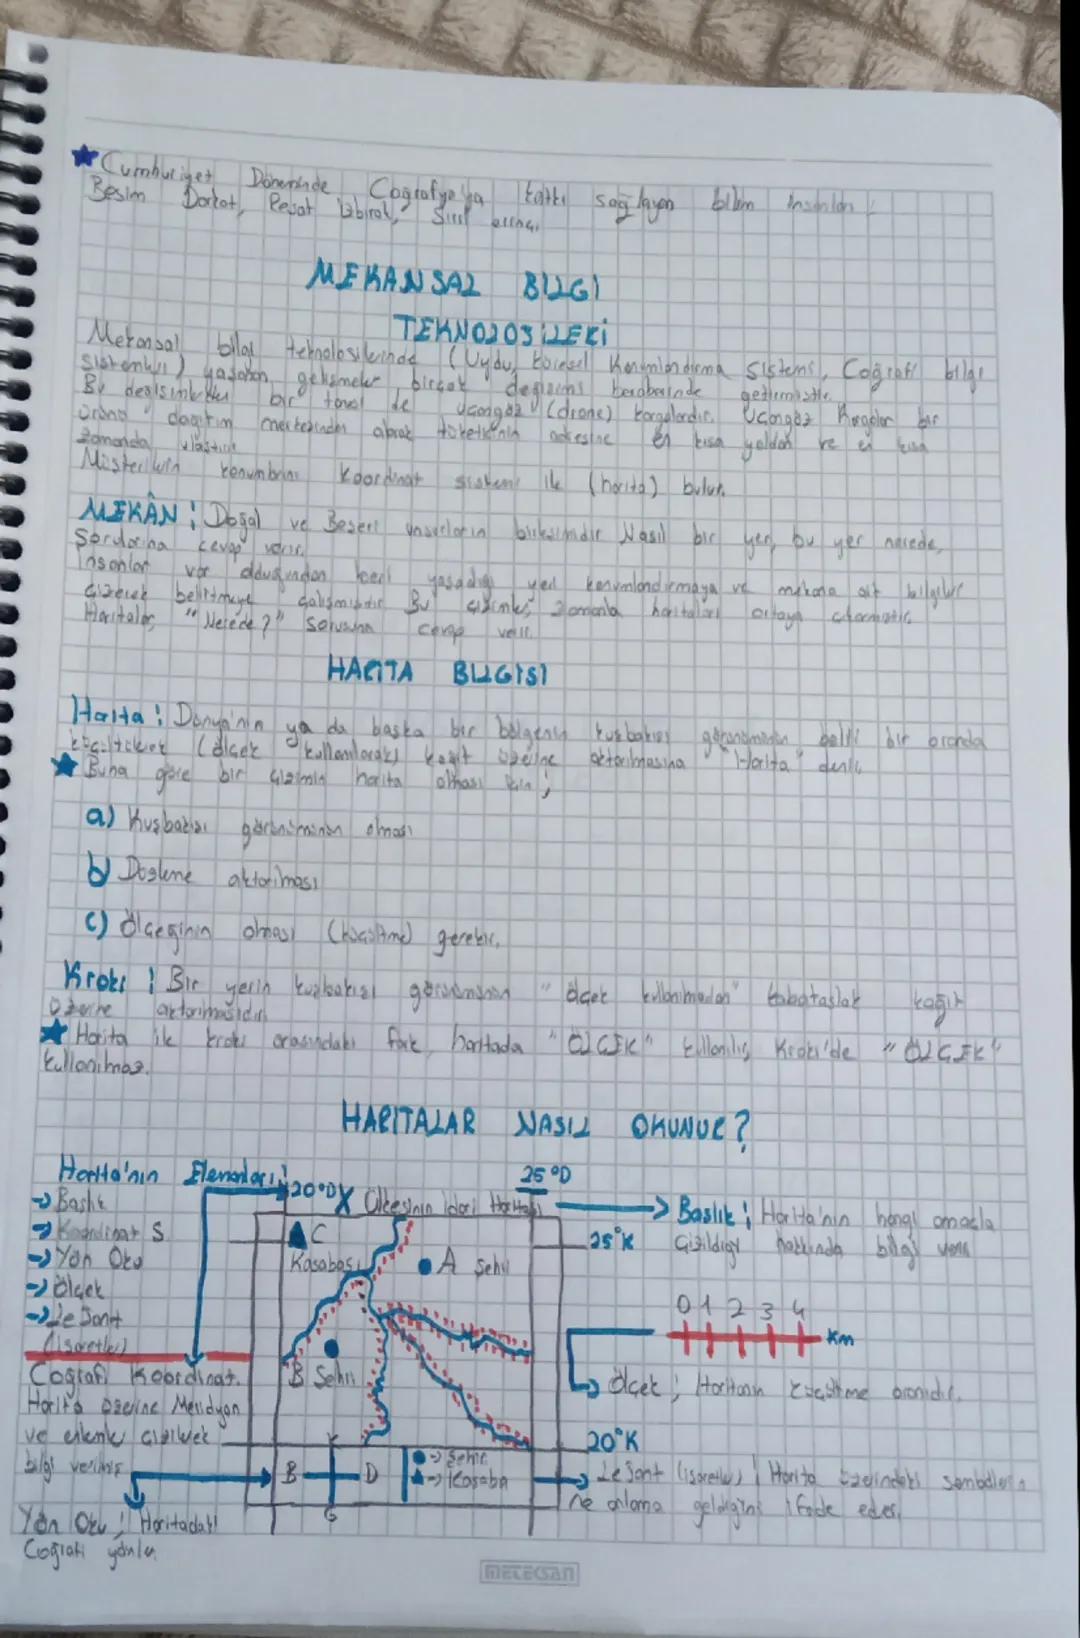 ★ Cumhuriyet Döneminde Coğrafya'ya katkı sağlayan bilim insanları;
Besim Darkot, Reşat İzbırak, Sırrı erinç.
MEKANSAL BİLGİ
TEKNOLOJİLERİ
Mekansal bilgi teknolojilerinde (Uydu, küresel Konumlandırma sistemi, Coğrafi bilgi
sistemleri) yaşanan gelişmeler birçok değişimi beraberinde getirmiştir.
Bu değişimlerden bir tanesi de uçangöz (drone) kargolardır. Uçangöz Kargolar bir
ürünü dağıtım merkezinden alarak tüketicinin adresine en kısa yoldan ve en kısa
zamanda ulaştırır.
Müşterilerin konumlarını Koordinat sistemi ile (harita) bulur.
MEKÂN: Doğal ve Beşeri unsurların birleşimidir. Nasıl bir yer, bu yer nerede,
sorularına cevap verir.
İnsanlar var olduğundan beri yaşadığı yeri konumlandırmaya ve mekana ait bilgileri
çizerek belirtmeye çalışmıştır. Bu çizimler, zamanla haritaları ortaya çıkarmıştır.
Haritalar, "Nerede?" sorusuna cevap verir.
HARİTA BİLGİSİ
Harita: Dünya'nın ya da başka bir bölgenin kuşbakışı görünümünün belli bir oranda
küçültülerek (ölçek kullanılarak) kağıt üzerine aktarılmasına "Harita" denir.
★ Buna göre bir çizimin harita olması için;
a) Kuşbakışı görünümünün olması
b) Düzleme aktarılması
c) Ölçeğinin olması (küçültme) gerekir.
Kroki: Bir yerin kuşbakışı görünümünün "ölçek kullanılmadan" kabataslak kağıt
üzerine aktarımasıdır.
★ Harita ile kroki arasındaki fark, haritada "ÖLÇEK" kullanılır, Kroki'de "ÖLÇEK"
kullanılmaz.
HARİTALAR NASIL OKUNUR?
Harita'nın Elemanları;
→ Başlık
→ Koordinat S.
→ Yön Oku
→ Ölçek
→ Lejant
(İşaretler)
20°D
X Ülkesinin İdari Haritası
25°D
C
Kasabası
A Şehri
B Şehri
25°K
20°K
→ Başlık; Harita'nın hangi amaçla
çizildiği hakkında bilgi verir.
0 1 2 3 4
Km
Ölçek; Haritanın küçültme oranıdır.
Coğrafi Koordinat.
Harita üzerine Meridyen
ve enlemler çizilerek
bilgi verilmiş
K
B D
G
→ Şehir
→ Kasaba
→ Lejant (işaretler); Harita üzerindeki sembollerin
ne anlama geldiğini ifade eder.
Yön Oku; Haritadaki
Coğrafi yönler
metecsan